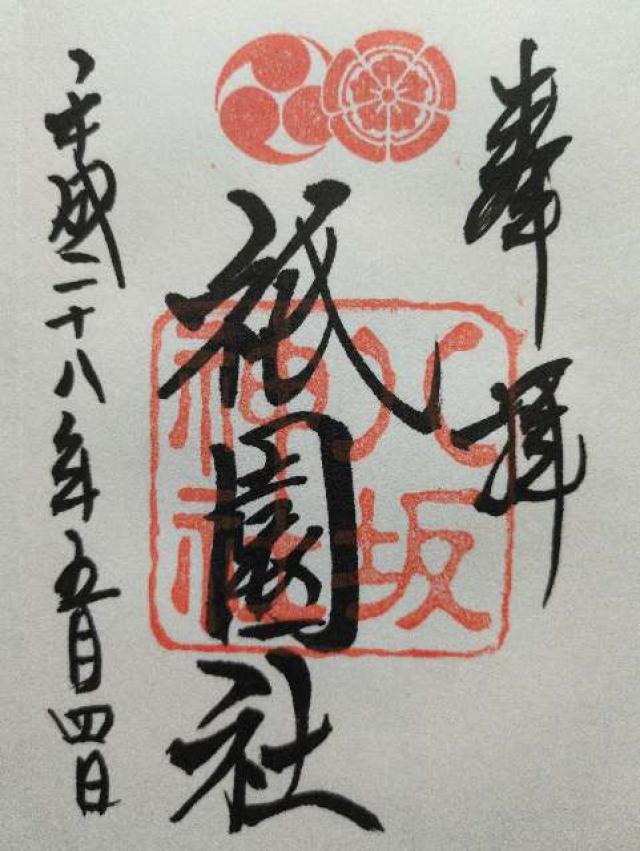 奉拝
八坂
神社
祇園社
平成二十八年五月四日